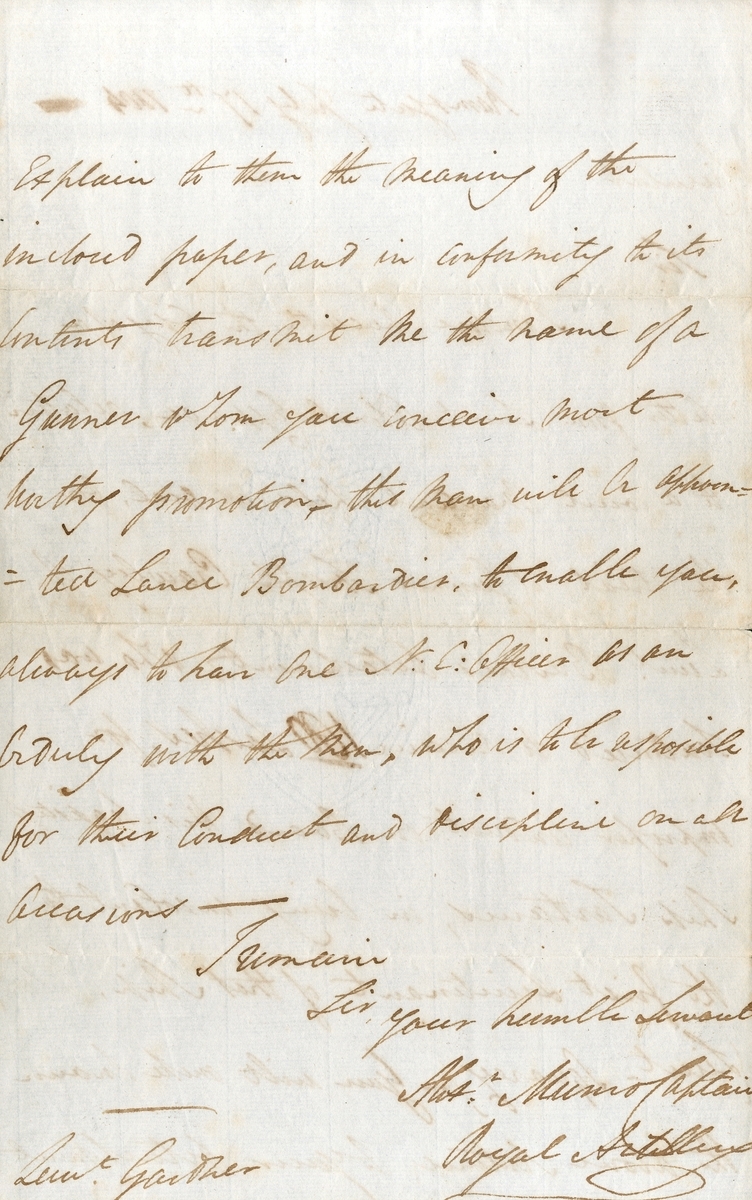 Explain to them the meaning of the
inclosed paper, and in conformity to its
Contents transmit me the name of a
Gunner whom you conceive most
worthy promotion, this man will be appoin=
=ted Lance Bombardier, to enable you,
always to have One N: C: Officer as an
Orderly with the Men, who is to be resposible
for their Conduct and Discipline on all
Occasions —
I remain
Sir, your humble Servant
Alexr. Munro Captain
Royal Artillery
Lieut. Gardner